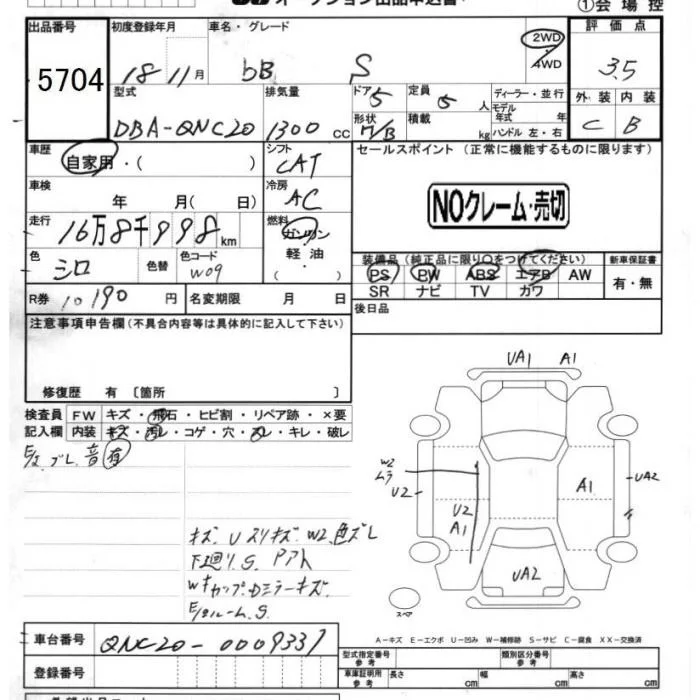 オークション出品申込書
①会場控
出品番号 初度登録年月 車名・グレード 2WD 評価点
5704 18 11月 bB S 4WD 3.5
型式 排気量 ドア 5 定員 5 人 ディーラー・並行 外装 内装
DBA-QNC20 1300 cc 形状 積載 kg モデル年式 年 ハンドル 左・右 C B
車歴 自家用・( ) シフト CAT セールスポイント (正常に機能するものに限ります)
車検 年 月( 日) 冷房 AC
NOクレーム・売切
走行 16万8千998km 燃料 ガソリン 軽油 ( )
色 シロ 色替 色コード W09
装備品 (純正品に限り○をつけてください) 新車保証書
PS PW ABS エアB AW 有・無
SR ナビ TV カワ
R券 10190 円 名変期限 月 日
後日品
注意事項申告欄 (不具合内容等は具体的に記入して下さい)
修復歴 有 〔箇所 〕
検査員 FW キズ・飛石・ヒビ割・リペア跡・×要
記入欄 内装 キズ・汚レ・コゲ・穴・スレ・キレ・破レ
E/g ブレ 音 有
キズ Uスリキズ W2 色ズレ
下廻り.S.
Wキャップ.Dミラーキズ
E/gルーム.S.
UA1 A1
W2
ムラ
U2
U2
A1
A1
UA2
UA2
スペア
A－キズ E－エクボ U－凹み W－補修跡 S－サビ C－腐食 XX－交換済
車台番号 QNC20-0009337
登録番号
型式指定番号 参考 類別区分番号 参考
車庫証明用 参考 長さ cm 幅 cm 高さ cm